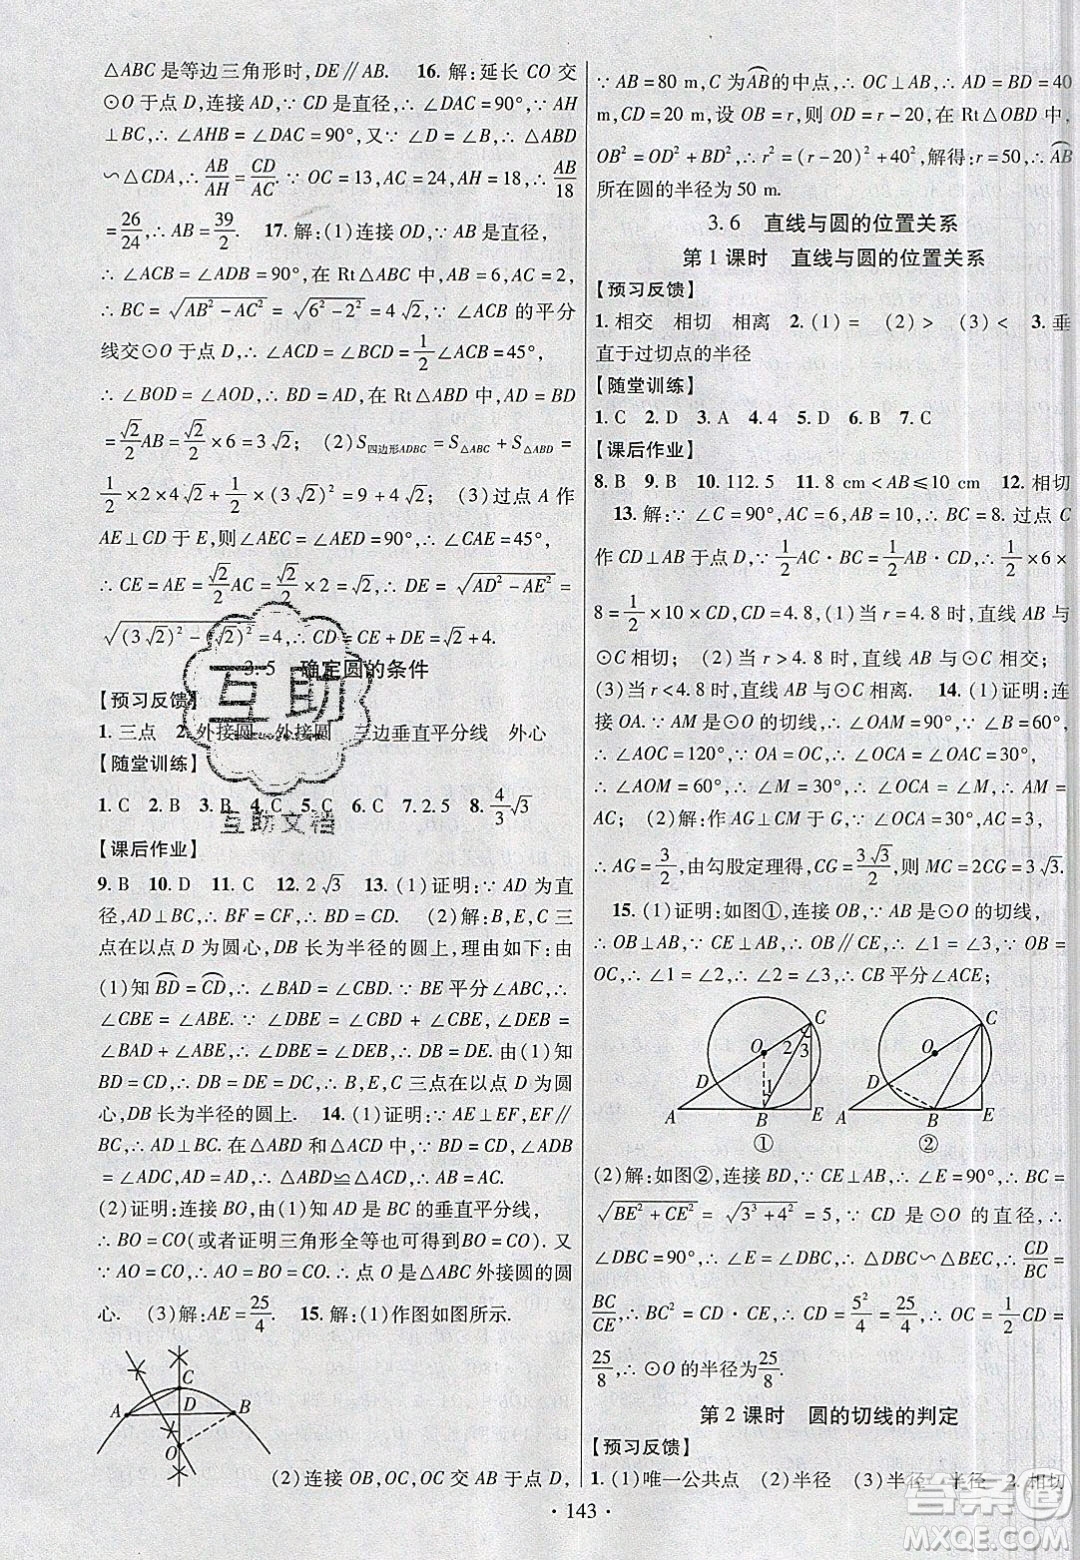 △ABC 是等边三角形时,DE∥AB.　16. 解:延长 CO 交
⊙O 于点 D,连接 AD,∵ CD 是直径,∴ ∠DAC = 90°,∵ AH
⊥BC,∴ ∠AHB = ∠DAC = 90°,又∵ ∠D = ∠B,∴ △ABD
∽△CDA,∴ AB/AH = CD/AC. ∵ OC = 13,AC = 24,AH = 18,∴ AB/18
= 26/24,∴ AB = 39/2.　17. 解:(1)连接 OD,∵ AB 是直径,
∴ ∠ACB = ∠ADB = 90°,在 Rt△ABC 中,∵ AB = 6,AC = 2,
∴ BC = √(AB² − AC²) = √(6² − 2²) = 4√2,∵ ∠ACB 的平分
线交⊙O 于点 D,∴ ∠ACD = ∠BCD = 1/2∠ACB = 45°,
∴ ∠BOD = ∠AOD,∴ BD = AD,在 Rt△ABD 中,BD
= √2/2 AB = √2/2 × 6 = 3√2; (2)S四边形ADBC = S△ABC + S△ABD =
1/2 × 2 × 4√2 + 1/2 × 3√2 × 3√2 = 9 + 4√2; (3)过点 A 作
AE⊥CD 于 E,则∠AEC = ∠AED = 90°,∵ ∠CAE = 45°,
∴ CE = AE = √2/2 AC = √2/2 × 2 = √2,∴ DE = √(AD² − AE²) =
√((3√2)² − (√2)²) = 4,∴ CD = CE + DE = √2 + 4.
3.5　确定圆的条件
【预习反馈】
1. 三点　2. 外接圆　外接圆　三边垂直平分线　外心
【随堂训练】
1. C　2. B　3. B　4. C　5. C　6. C　7. 2.5　8. 4/3√3
【课后作业】
9. B　10. D　11. C　12. 2√3　13. (1)证明:∵ AD 为直
径,AD⊥BC,∴ BF = CF,∴ BD = CD. (2)解:B,E,C 三
点在以点 D 为圆心,DB 长为半径的圆上,理由如下:由
(1)知 BD = CD,∴ ∠BAD = ∠CBD. ∵ BE 平分∠ABC,
∴ ∠CBE = ∠ABE. ∵ ∠DBE = ∠CBD + ∠CBE,∠DEB =
∠BAD + ∠ABE,∴ ∠DBE = ∠DEB,∴ DB = DE. 由(1)知
BD = CD,∴ DB = DE = DC,∴ B,E,C 三点在以点 D 为圆
心,DB 长为半径的圆上.　14. (1)证明:∵ AE⊥EF,EF∥
BC,∴ AD⊥BC. 在△ABD 和△ACD 中,∵ BD = CD,∠ADB
= ∠ADC,AD = AD,∴ △ABD≌△ACD,∴ AB = AC.
(2)证明:连接 BO,由(1)知 AD 是 BC 的垂直平分线,
∴ BO = CO(或者证明三角形全等也可得到BO = CO). 又
∵ AO = CO,∴ AO = BO = CO,∴ 点 O 是△ABC 外接圆的圆
心. (3)解:AE = 25/4.　15. 解:(1)作图如图所示.
C
A　D　B
O
(2)连接 OB,OC,OC 交 AB 于点 D,
∵ AB = 80 m,C 为AB的中点,∴ OC⊥AB,∴ AD = BD = 40
m,CD = 20 m,设 OB = r,则 OD = r − 20,在 Rt△OBD 中,
OB² = OD² + BD²,∴ r² = (r − 20)² + 40²,解得:r = 50,∴ AB
所在圆的半径为 50 m.
3.6　直线与圆的位置关系
第 1 课时　直线与圆的位置关系
【预习反馈】
1. 相交　相切　相离　2. (1) =　(2) >　(3) <　3. 垂
直于过切点的半径
【随堂训练】
1. C　2. D　3. A　4. 4　5. D　6. B　7. C
【课后作业】
8. B　9. B　10. 112.5　11. 8 cm < AB ≤ 10 cm　12. 相切
13. 解:∵ ∠C = 90°,AC = 6,AB = 10,∴ BC = 8. 过点 C
作 CD⊥AB 于点 D,∵ 1/2 AC · BC = 1/2 AB · CD,∴ 1/2 × 6 ×
8 = 1/2 × 10 × CD,CD = 4.8,(1)当 r = 4.8 时,直线 AB 与
⊙C 相切; (2)当 r > 4.8 时,直线 AB 与⊙C 相交;
(3)当 r < 4.8 时,直线 AB 与⊙C 相离.　14. (1)证明:连
接 OA. ∵ AM 是⊙O 的切线,∴ ∠OAM = 90°,∵ ∠B = 60°,
∴ ∠AOC = 120°,∵ OA = OC,∴ ∠OCA = ∠OAC = 30°,
∴ ∠AOM = 60°,∴ ∠M = 30°,∴ ∠OCA = ∠M,∴ AM =
AC; (2)解:作 AG⊥CM 于 G,∵ ∠OCA = 30°,AC = 3,
∴ AG = 3/2,由勾股定理得,CG = 3√3/2,则 MC = 2CG = 3√3.
15. (1)证明:如图①,连接 OB,∵ AB 是⊙O 的切线,
∴ OB⊥AB,∵ CE⊥AB,∴ OB∥CE,∴ ∠1 = ∠3,∵ OB =
OC,∴ ∠1 = ∠2,∴ ∠2 = ∠3,∴ CB 平分∠ACE;
C　C
O　2　3　O
D　1　D
A　B　E　A　B　E
①　②
(2)解:如图②,连接 BD,∵ CE⊥AB,∴ ∠E = 90°,∴ BC =
√(BE² + CE²) = √(3² + 4²) = 5,∵ CD 是⊙O 的直径,∴
∠DBC = 90°,∴ ∠E = ∠DBC,∴ △DBC∽△BEC,∴ CD/BC =
BC/CE,∴ BC² = CD · CE,∴ CD = 5²/4 = 25/4,∴ OC = 1/2 CD =
25/8,∴ ⊙O 的半径为25/8.
第 2 课时　圆的切线的判定
【预习反馈】
1. (1)唯一公共点　(2)半径　(3)半径　半径　2. 相切
· 143 ·
互助
互助文档
答案圈
MXQE.COM